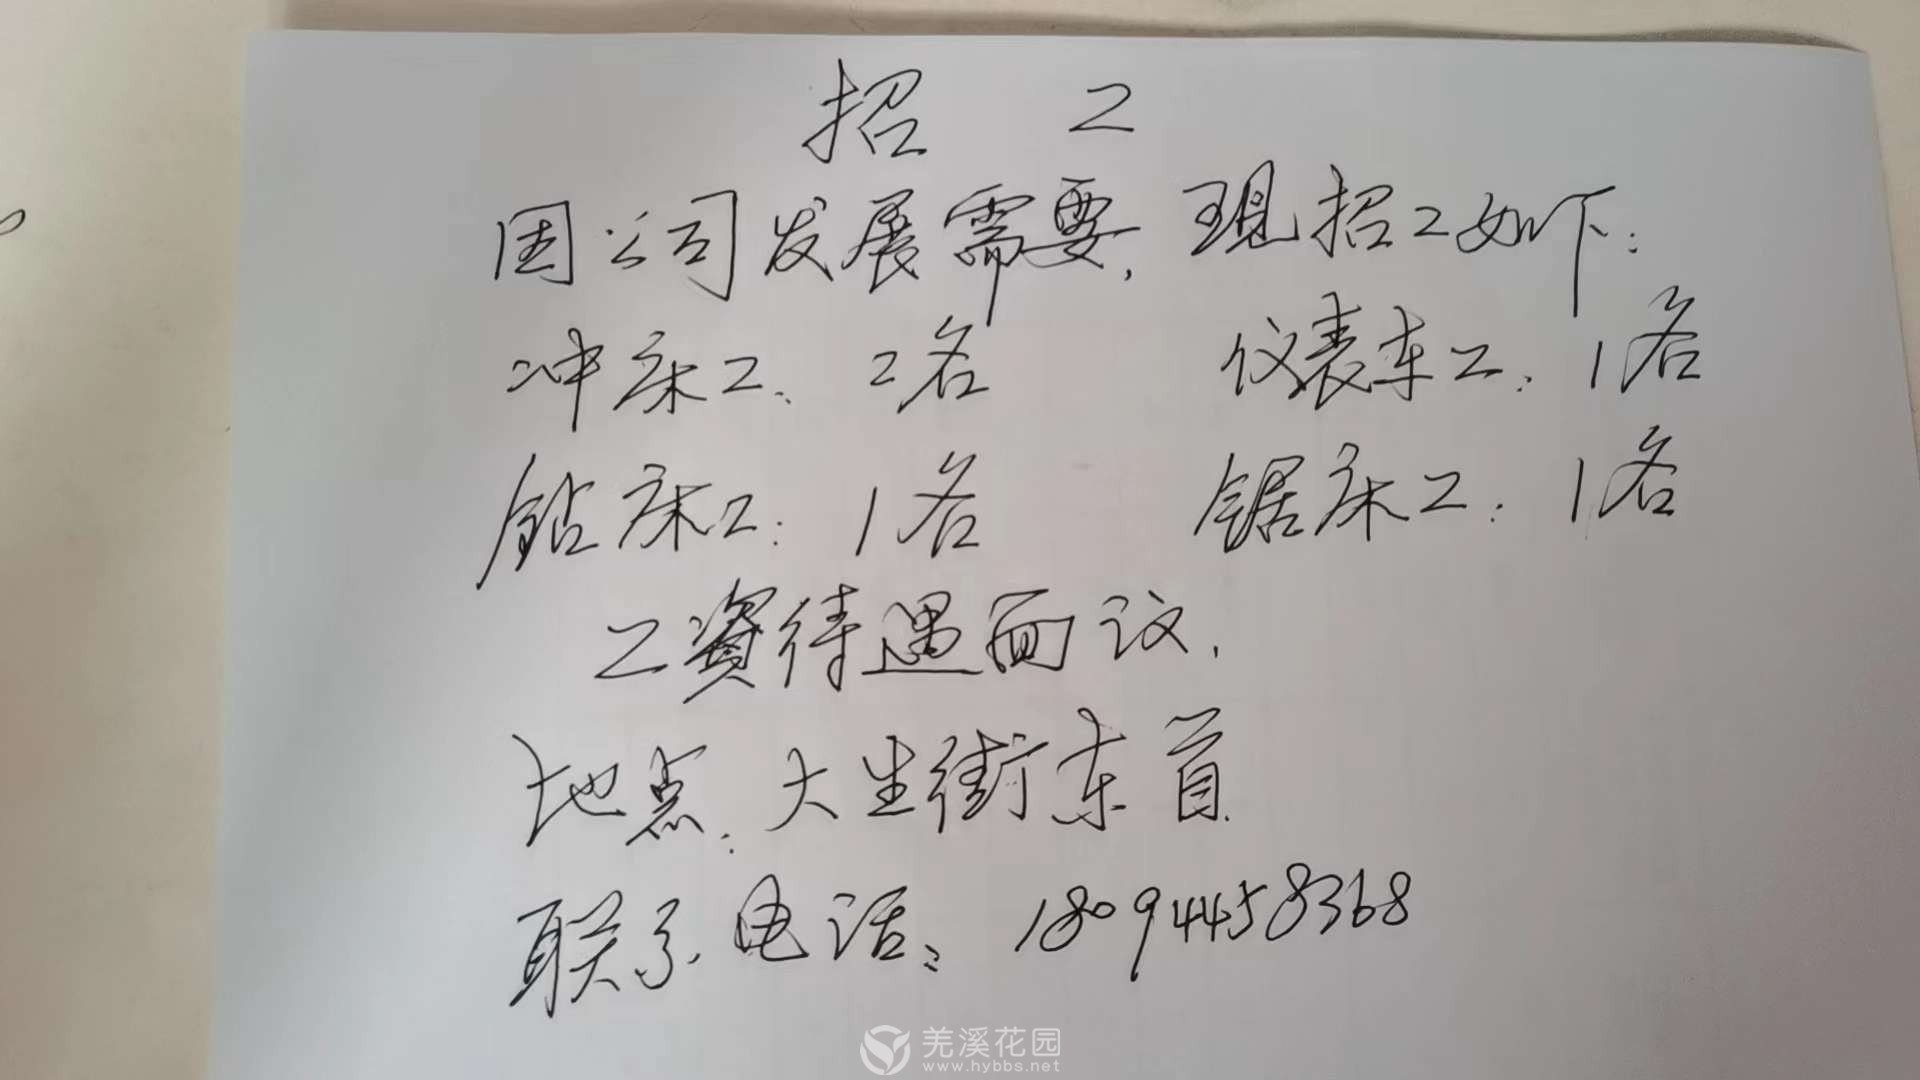 招 工
因公司发展需要，现招工如下：
冲床工：2名 仪表车工：1名
钻床工：1名 锯床工：1名
工资待遇面议，
地点：大生街东首
联系电话：18094458368
羌溪花园
www.hybbs.net